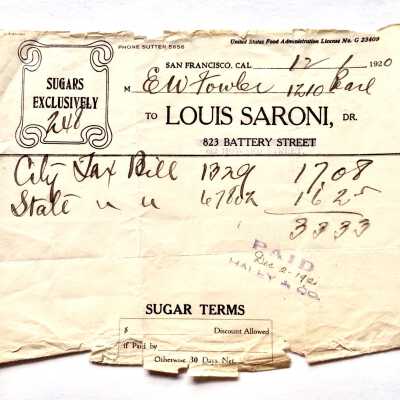 PHONE SUTTER 5656
United States Food Administration License No. G 23409
SUGARS
EXCLUSIVELY
248
SAN FRANCISCO, CAL. 12/1 1920
M E W Fowler 1210
TO LOUIS SARONI, DR.
823 BATTERY STREET
City Tax Bill 1329 1708
State " " 67802 1625
3333
PAID
Dec 2-192
HALEY & CO.
SUGAR TERMS
$ Discount Allowed
if Paid by
Otherwise 30 Days Net.